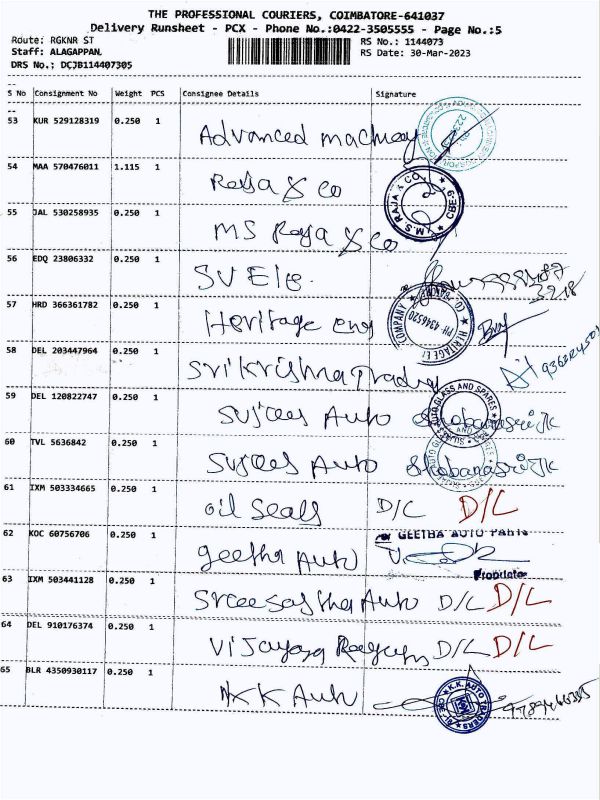 THE PROFESSIONAL COURIERS, COIMBATORE-641037
Delivery Runsheet - PCX - Phone No.:0422-3505555 - Page No.:5
Route: RGKNR ST RS No.: 1144073
Staff: ALAGAPPAN, RS Date: 30-Mar-2023
DRS No.: DCJB114407305
S No Consignment No Weight PCS Consignee Details Signature
53 KUR 529128319 0.250 1
Advanced
54 MAA 570476011 1.115 1
Raja & co
M.S RAJA & CO. CBE-6
55 JAL 530258935 0.250 1
MS Raja & co
56 EDQ 23806332 0.250 1
SV Ele.
57 HRD 366361782 0.250 1
Heritage eng
PH 4346520
58 DEL 203447964 0.250 1
Srikrishna Trading
59 DEL 120822747 0.250 1
Sujees Auto
AUTO GLASS AND SPARES
60 TVL 5636842 0.250 1
Sujees Auto
61 IXM 503334665 0.250 1
oil Seals D/C D/L
62 KOC 60756706 0.250 1
for GEETHA AUTO PARTS
geetha Auto
Proprietor
63 IXM 503441128 0.250 1
Auto D/L D/L
64 DEL 910176374 0.250 1
Vijayaga D/L D/L
65 BLR 4350930117 0.250 1
KK Auto
K.K. AUTO TRADERS